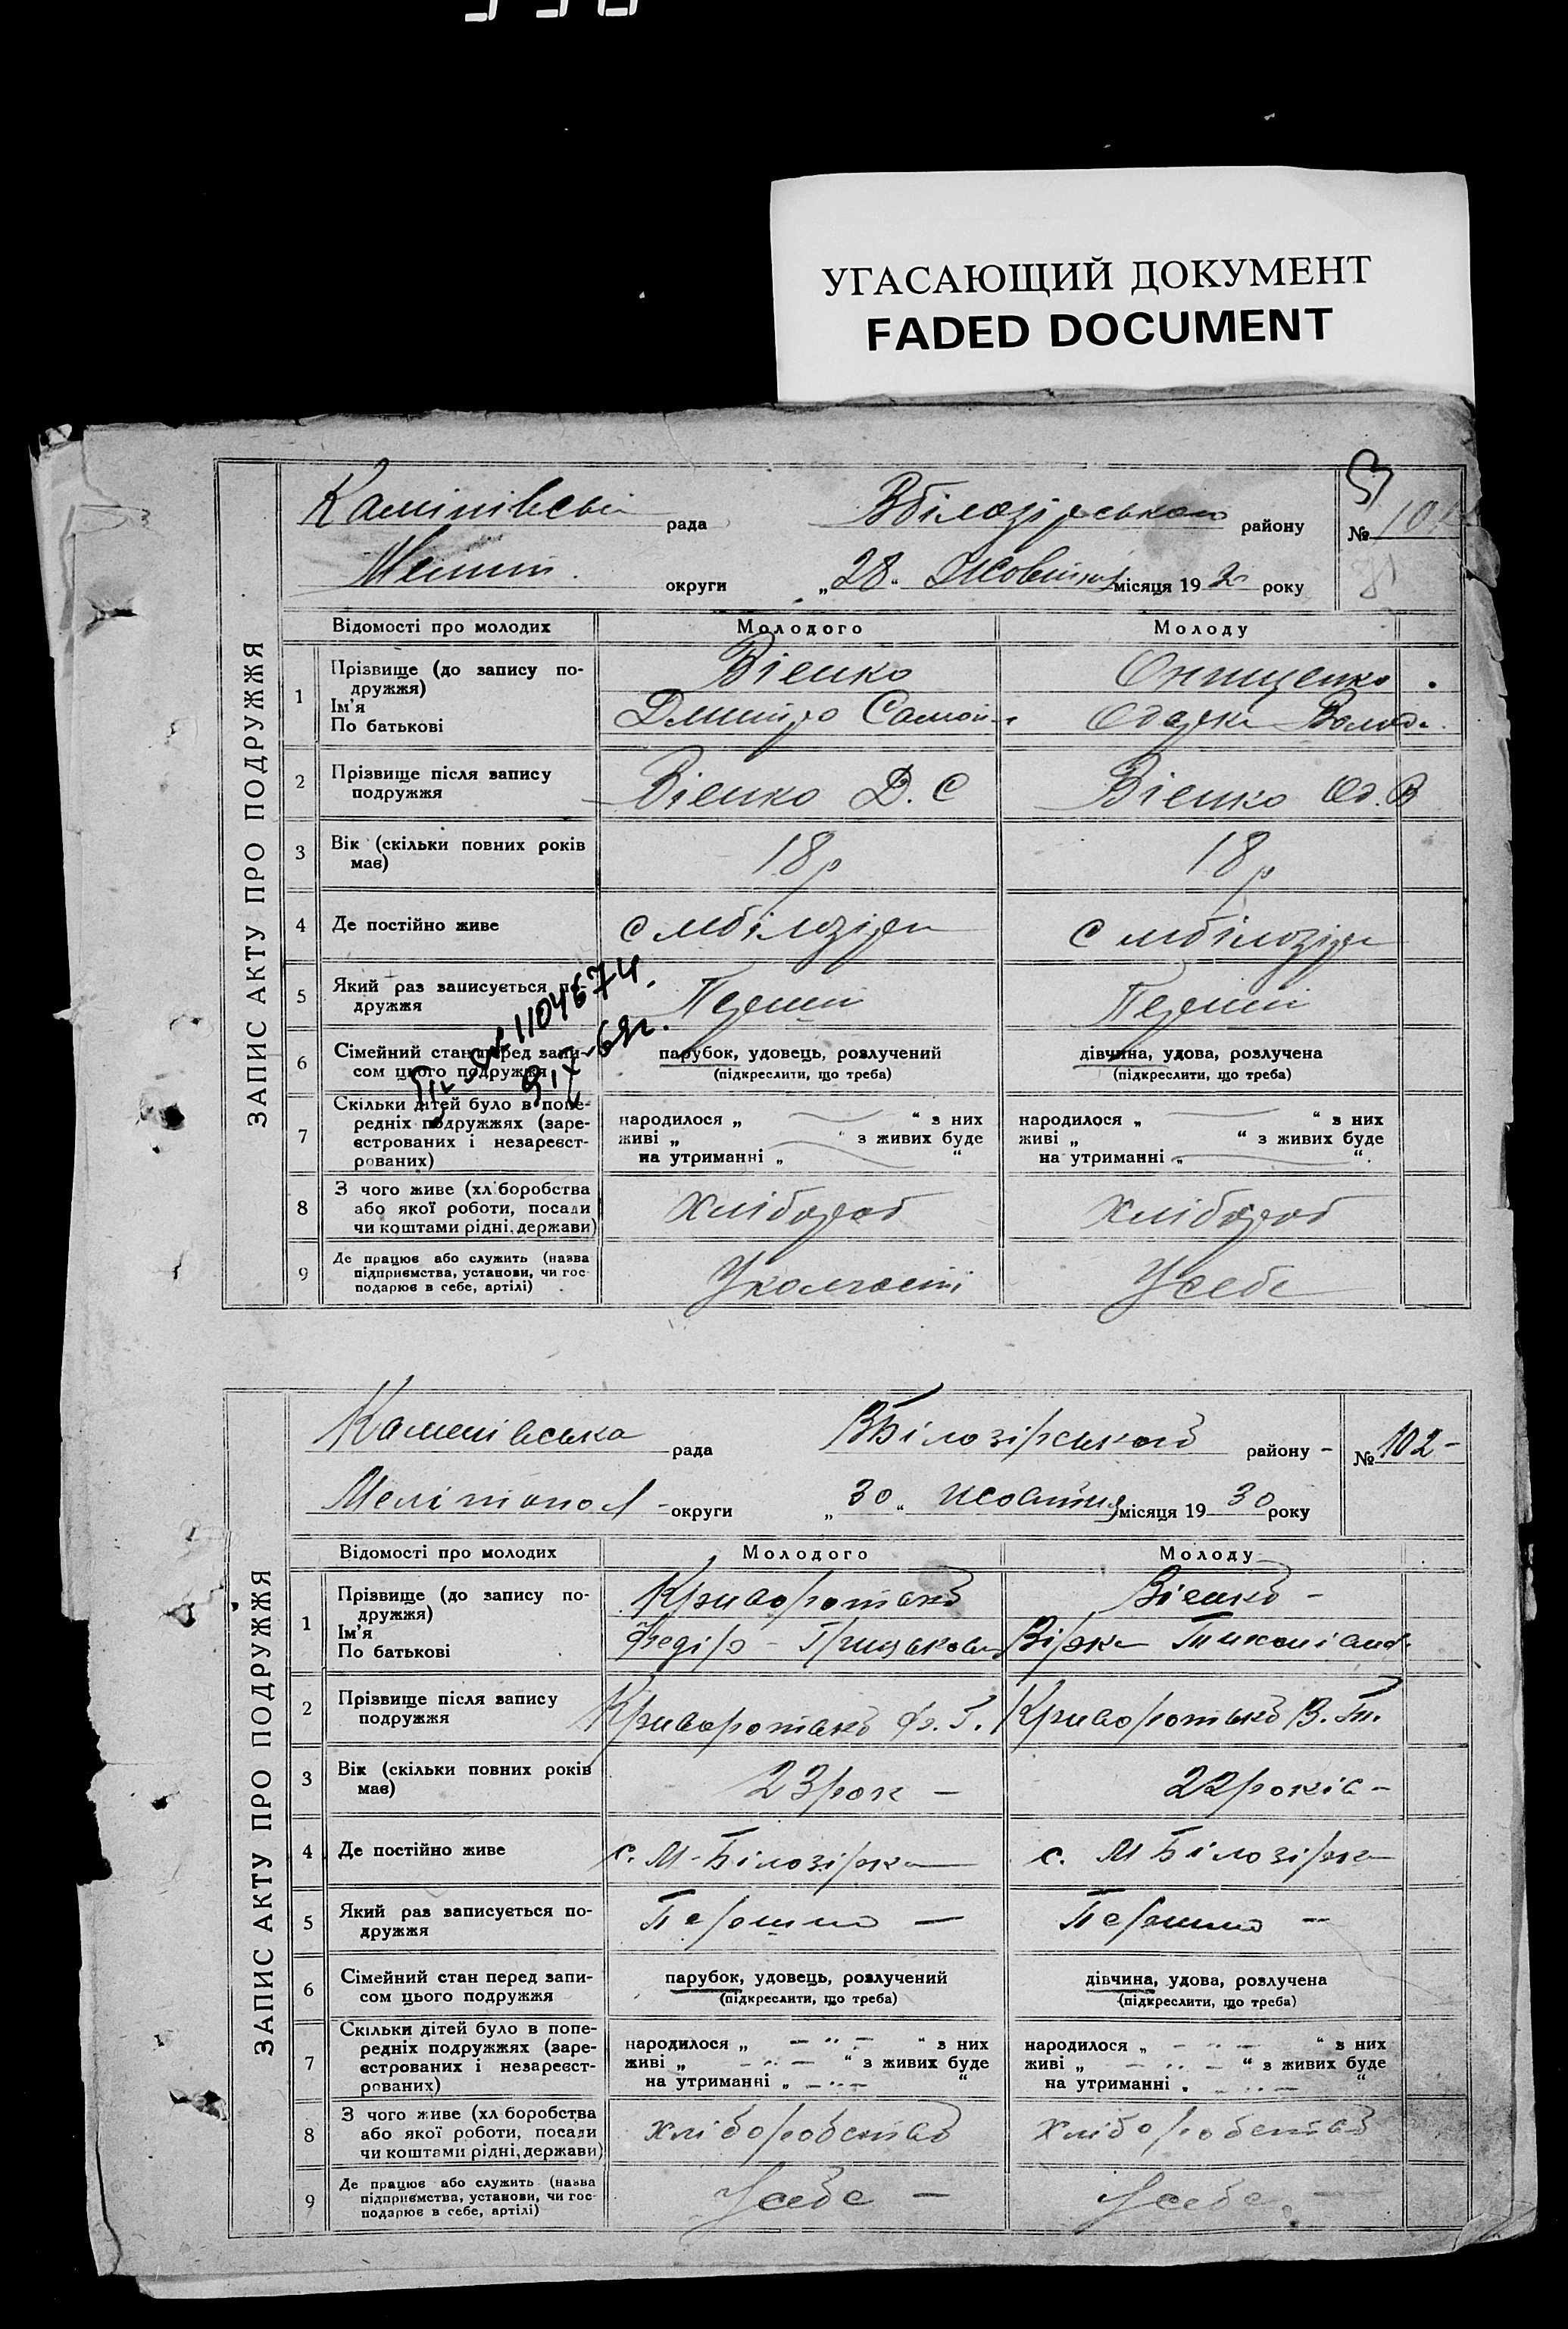 УГАСАЮЩИЙ ДОКУМЕНТ
FADED DOCUMENT
ЗАПИС АКТУ ПРО ПОДРУЖЖЯ
рада
району
№ 101
округи
„28“ місяця 19 року
Відомості про молодих
Молодого
Молоду
1
Прізвище (до запису подружжя)
Ім'я
По батькові
Вієнко
Онищенко
Дмитро Самой
Одарка Волод.
2
Прізвище після запису
подружжя
Вієнко Д. С
Вієнко Од. В
3
Вік (скільки повних років
має)
18 р
18 р
4
Де постійно живе
с мбілозірка
с мбілозірка
5
Який раз записується подружжя
Перший
Перший
6
Сімейний стан перед записом цього подружжя
парубок, удовець, розлучений
(підкреслити, що треба)
дівчина, удова, розлучена
(підкреслити, що треба)
7
Скільки дітей було в попередніх подружжях (зареєстрованих і незареєстрованих)
народилося „ “ з них
живі „ “ з живих буде
на утриманні „ “
народилося „ “ з них
живі „ “ з живих буде
на утриманні „ “.
8
З чого живе (хліборобства
або якої роботи, посади
чи коштами рідні, держави)
хлібороб
хлібороб
9
Де працює або служить (назва
підприємства, установи, чи господарює в себе, артілі)
Усебе
1104674.
ЗАПИС АКТУ ПРО ПОДРУЖЖЯ
Каменівська рада
ВБілозірського району -
№ 102 -
Мелітопол - округи
„30“ жовтня місяця 19 30 року
Відомості про молодих
Молодого
Молоду
1
Прізвище (до запису подружжя)
Ім'я
По батькові
Вієнко -
Федір - Грицьков
Вірка
2
Прізвище після запису
подружжя
3
Вік (скільки повних років
має)
23 рок -
22 років -
4
Де постійно живе
с. М-Білозірка
с. М Білозірка
5
Який раз записується подружжя
6
Сімейний стан перед записом цього подружжя
парубок, удовець, розлучений
(підкреслити, що треба)
дівчина, удова, розлучена
(підкреслити, що треба)
7
Скільки дітей було в попередніх подружжях (зареєстрованих і незареєстрованих)
народилося „ — „ — “ з них
живі „ — „ — “ з живих буде
на утриманні „ — „ — “
народилося „ — „ — “ з них
живі „ — „ — “ з живих буде
на утриманні „ — „ — “
8
З чого живе (хліборобства
або якої роботи, посади
чи коштами рідні, держави)
хліборобство
хліборобство
9
Де працює або служить (назва
підприємства, установи, чи господарює в себе, артілі)
Усебе —
Усебе —